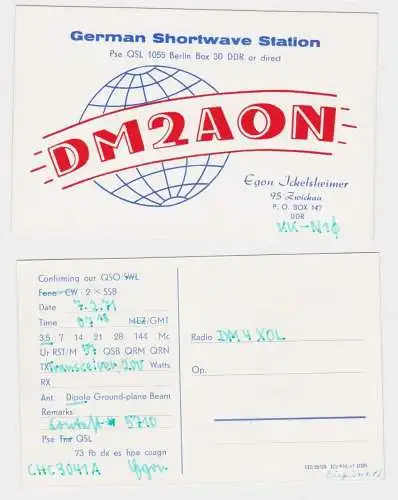 German Shortwave Station
Pse QSL 1055 Berlin Box 30 DDR or direct
DM2AON
Egon Ickelsheimer
95 Zwickau
P. O. BOX 147
DDR
KK-N10
Confirming our QSO SWL
Fone CW 2 × SSB
Date 7.2.71
Time 07 MEZ/GMT
3,5 7 14 21 28 144 Mc
Ur RST/M 59 QSB QRM QRN
TX Transceiver 200 Watts
RX
Ant. Dipole Ground-plane Beam
Remarks
5710
Pse Tnr QSL
73 fb dx es hpe cuagn
CHC3041A Egon
Radio DM4XOL
Op.